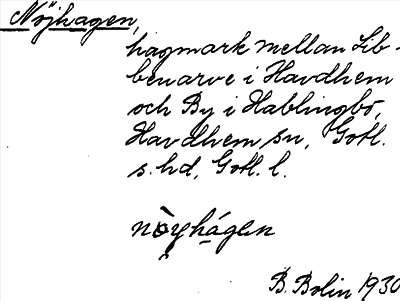 Nöjhagen,
hagmark mellan Sib-
benarve i Havdhem
och By i Hablingbo,
Havdhem sn, Gotl.
s. hd, Gotl. l.
nòyhágen
B. Bolin 1930